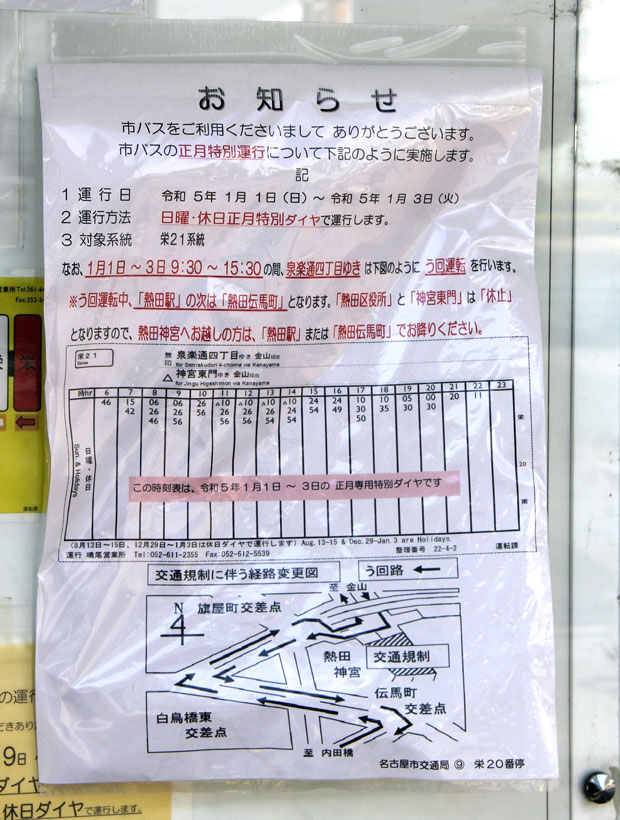 お知らせ
市バスをご利用くださいまして ありがとうございます。
市バスの正月特別運行について下記のように実施します。
記
1 運行日 令和 5年 1月 1日(日)~ 令和 5年 1月 3日(火)
2 運行方法 日曜・休日正月特別ダイヤで運行します。
3 対象系統 栄21系統
なお、1月1日~3日 9:30~15:30の間、泉楽通四丁目ゆき は下図のように う回運転 を行います。
※う回運転中、「熱田駅」の次は「熱田伝馬町」となります。「熱田区役所」と「神宮東門」は「休止」
となりますので、熱田神宮へお越しの方は、「熱田駅」または「熱田伝馬町」でお降りください。
栄21
無印 泉楽通四丁目ゆき 金山経由
for Senrakudori 4-chome via Kanayama
△ 神宮東門ゆき 金山経由
for Jingu Higashimon via Kanayama
時hr 6 7 8 9 10 11 12 13 14 15 16 17 18 19 20 21 22 23
46 15 06 06 26 △10 △10 △10 △10 24 24 10 10 05 00 11
42 26 26 56 26 26 26 24 54 49 30 35 30 30
46 56 56 56 54 54 50
20
日曜・休日
Sun. & Holidays
栄
20
この時刻表は、令和5年1月1日 ~ 3日の 正月専用特別ダイヤです
(8月13日~15日、12月29日~1月3日は休日ダイヤで運行します) Aug.13-15 & Dec.29-Jan.3 are Holidays.
運行 鳴尾営業所 Tel:052-611-2355 Fax:052-612-5539 整理番号 22-4-2 運転課
交通規制に伴う経路変更図
う回路 ←
至 金山
N
旗屋町交差点
熱田
神宮
交通規制
伝馬町
交差点
白鳥橋東
交差点
至 内田橋
名古屋市交通局 ⑨ 栄20番停
営業所Tel361-6
Fax:352-5
栄
運転課
の運行
9日
ダイヤ
休日ダイヤで運行します。